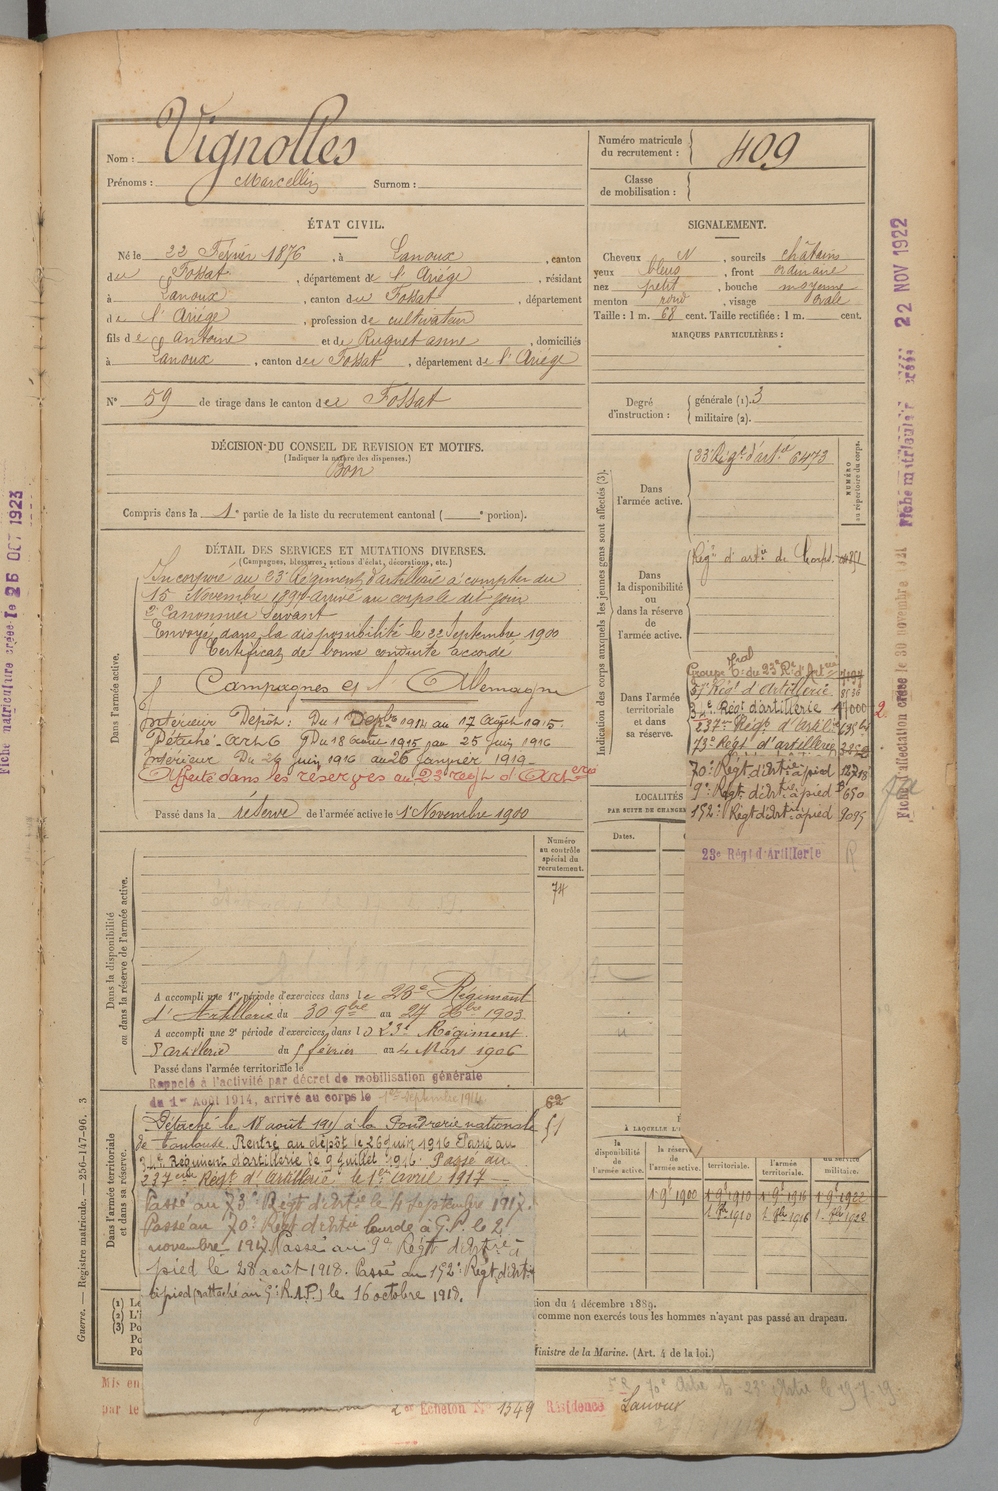 Nom : Vignolles
Prénoms : Marcellin Surnom :
Numéro matricule du recrutement : 409
Classe de mobilisation :
ÉTAT CIVIL.
Né le 22 Février 1876, à Lanoux, canton
du Fossat, département de l'Ariège, résidant
à Lanoux, canton du Fossat, département
de l'Ariège, profession de cultivateur
fils de Antoine et de Ruquet anne, domiciliés
à Lanoux, canton du Fossat, département de l'Ariège
N° 59 de tirage dans le canton de Fossat
SIGNALEMENT.
Cheveux N, sourcils châtains
yeux bleus, front ordinaire
nez petit, bouche moyenne
menton rond, visage ovale
Taille : 1 m. 68 cent. Taille rectifiée : 1 m. cent.
MARQUES PARTICULIÈRES :
Degré d'instruction : générale (1). 3
militaire (2).
DÉCISION DU CONSEIL DE REVISION ET MOTIFS.
(Indiquer la nature des dispenses.)
Bon
Compris dans la 1e partie de la liste du recrutement cantonal ( e portion).
DÉTAIL DES SERVICES ET MUTATIONS DIVERSES.
(Campagnes, blessures, actions d'éclat, décorations, etc.)
Dans l'armée active.
Incorporé au 23e Régiment d'artillerie à compter du
15 Novembre arrivé au corps le dit jour
2e Canonnier Servant
Envoyé dans la disponibilité le 22 Septembre 1900
Certificat de bonne conduite accordé
Campagnes l'Allemagne
Intérieur Dépôt : Du 1 1914 au 17 Août 1915.
Détaché Du 18 Août 1915 au 25 Juin 1916
Intérieur Du 26 Juin 1916 au 26 Janvier 1919
Affecté dans les réserves au 23e Régt d'Arterie
Passé dans la réserve de l'armée active le 1er Novembre 1900
Indication des corps auxquels les jeunes gens sont affectés (3).
NUMÉRO au répertoire du corps.
Dans l'armée active.
33e Régt d'art. 6473
Dans la disponibilité ou dans la réserve de l'armée active.
Régt d'art. de Corps.
Dans l'armée territoriale et dans sa réserve.
Groupe tral du 23e Rt d'Artrie
Régt d'Artillerie
Régt d'artillerie
237e Régt d'Artil
73e Régt d'artillerie
70e Régt d'Artie à pied
9e Régt d'Artie à pied
152e Régt d'Artie à pied 9095
23e Régt d'Artillerie
R
LOCALITÉS
PAR SUITE DE CHANGE
Dates.
Dans la disponibilité ou dans la réserve de l'armée active.
Numéro au contrôle spécial du recrutement.
74
A accompli une 1re période d'exercices dans le 23e Régiment
d'Artillerie du 30 9bre au 27 Xbre 1903.
A accompli une 2e période d'exercices dans le 23e Régiment
d'artillerie du 5 février au 4 Mars 1906
Passé dans l'armée territoriale le
Rappelé à l'activité par décret de mobilisation générale
du 1er Août 1914, arrivé au corps le 1er septembre 1914
62
51
Dans l'armée territoriale et dans sa réserve.
Détaché le 18 août 191 à la Fonderie nationale
de Toulouse. Rentré au dépôt le 26 juin 1916. Passé au
Régiment d'artillerie le 9 juillet 1916. Passé au
237eme Régt d'Artillerie le 1er avril 1917
Passé au 73e Régt d'Artie le 4 septembre 1917.
Passé au 70e Régt d'Artie lourde à G.P. le 2
novembre 1917. Passé au 9e Régt d'Artie à
pied le 28 août 1918. Passé au 152e Régt d'Artie
à pied (rattaché au 9e R.A.P.) le 16 octobre 1918.
À LAQUELLE L'
la disponibilité de l'armée active.
la réserve de l'armée active.
territoriale.
l'armée territoriale.
service militaire.
1 9bre 1900
1 9bre 1910
1 9bre 1916
1 Xbre 1910
(1)
(2)
(3)
ion du 4 décembre 1889.
comme non exercés tous les hommes n'ayant pas passé au drapeau.
Ministre de la Marine. (Art. 4 de la loi.)
Guerre. — Registre matricule. — 256-147-96. 3
Mis en
par le
2e Echelon N° 1349 Résidence Lanoux
Fiche matriculaire créée le 26 OCT 1923
Fiche matriculaire créée 22 NOV 1922
Fiche d'affectation créée le 30 novembre 1921